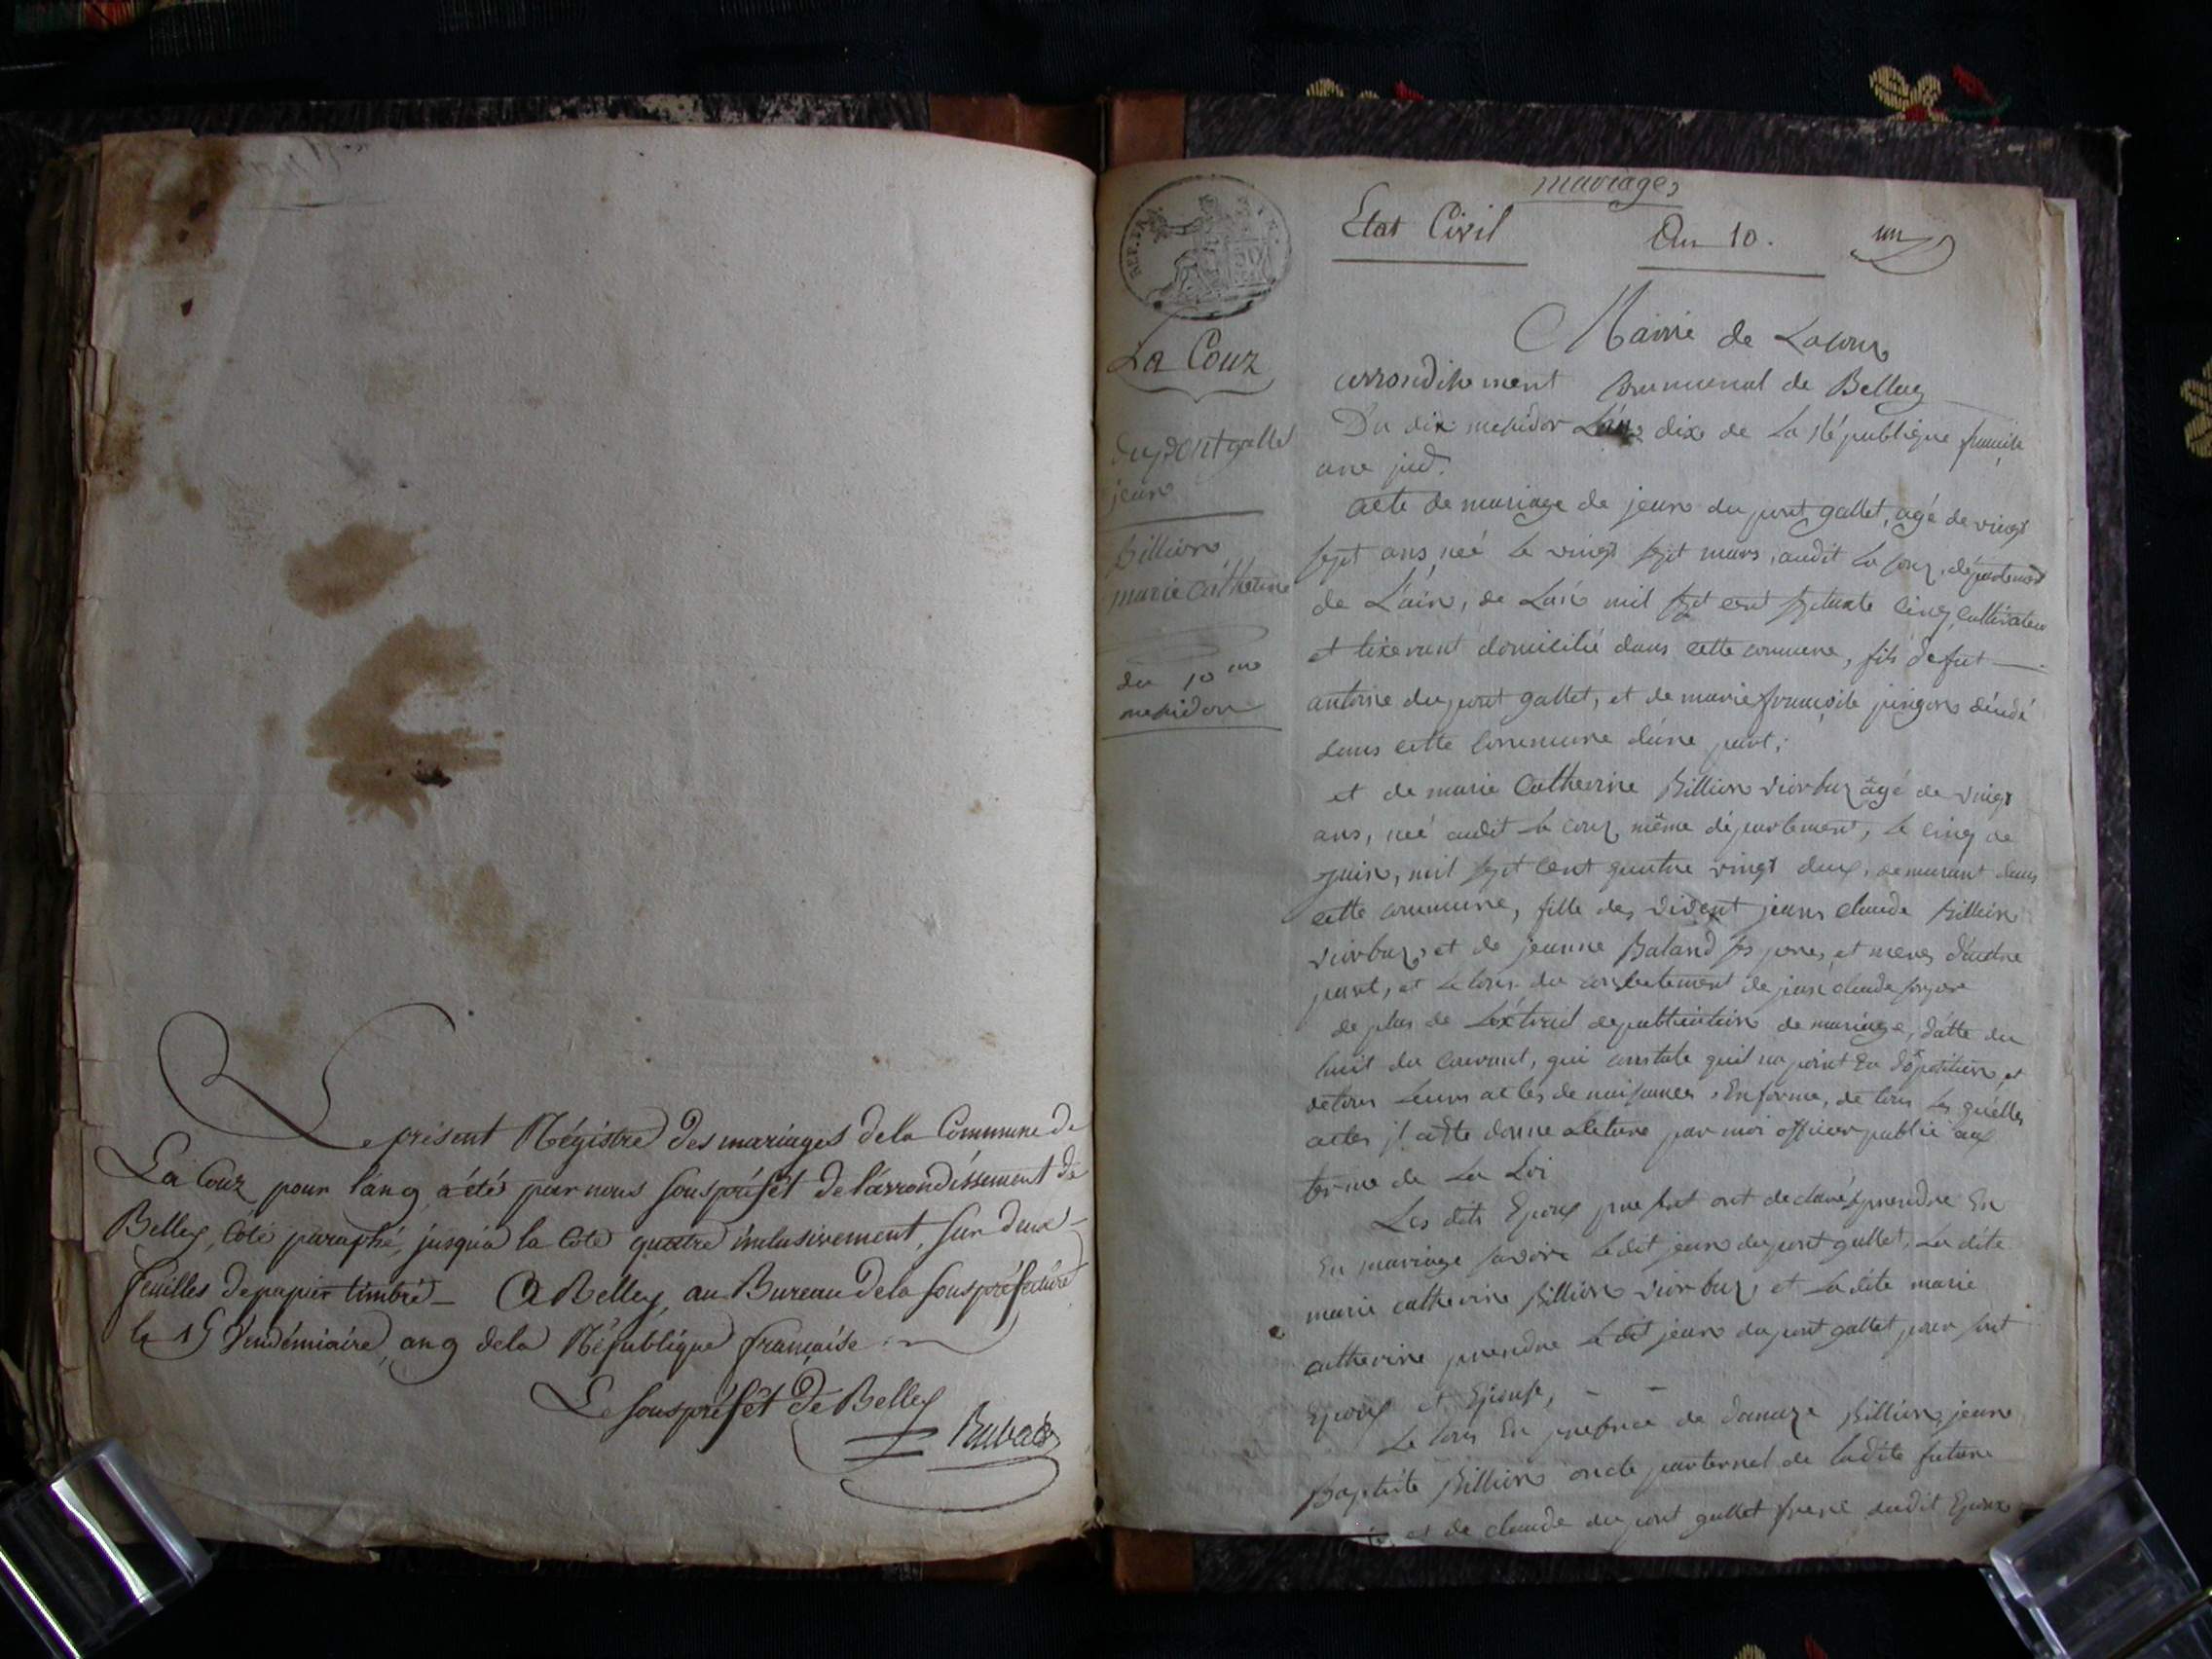 Le présent Régistre des mariages de la Commune de
La Couz pour l'an 9 a été par nous sous préfet de l'arrondissement de
Belley, côté paraphé, jusqu'à la cote quatre inclusivement, sur deux
feuilles de papier timbré _ A Belley, au Bureau de la sous préfecture
le 15 Vendémiaire, an 9 de la République française .
Le sous préfet de Belley
REP. FRA.
La Couz
dupont gallet
jean
Billion
marie catherine
du 10me
messidor
mariages
Etat Civil An 10. un
Mairie de Lacouz
arrondissement Communal de Belley
Du dix messidor L'an dix de La République française
acte de mariage de jean du pont gallet, agé de vingt
sept ans, neé le vingt sept mars, audit La Couz, département
de L'ain, de L'an mil sept cent septante cinq, cultivateur
et tixerant domicilié dans cette commune, fils de fut
antoine du pont gallet, et de marie françoise pingon décédé
dans cette commune d'une part;
et de marie Catherine Billion viorbuz âgé de vingt
ans, neé audit la couz même département, le cinq de
juin, mil sept cent quatre vingt deux, demurant dans
cette commune, fille des vivent jean claude Billion
viorbuz, et de jeanne Baland ses peres et meres d'autre
part, et de
de plus de L'extrait de publication de mariage, datte du
huit du courant, qui constate quil na point Eu d'opotition, et
de tous Leurs actes de naissances, En forme, de tous les quelles
actes il a été donné alecture par moi officier public aux
terme de La Loi
Les dits Epoux present ont declaré prendre En
En mariage savoire Ledit jean du pont gallet, La dite
marie catherine Billion viorbuz, et La dite marie
catherine prendre Ledit jean du pont gallet pour sont
Epoux et Epouse, - -
Le tous En presence de damaze Billion, jean
Baptiste Billion oncle paternel de ladite future
et de claude du pont gallet frere dudit Epoux